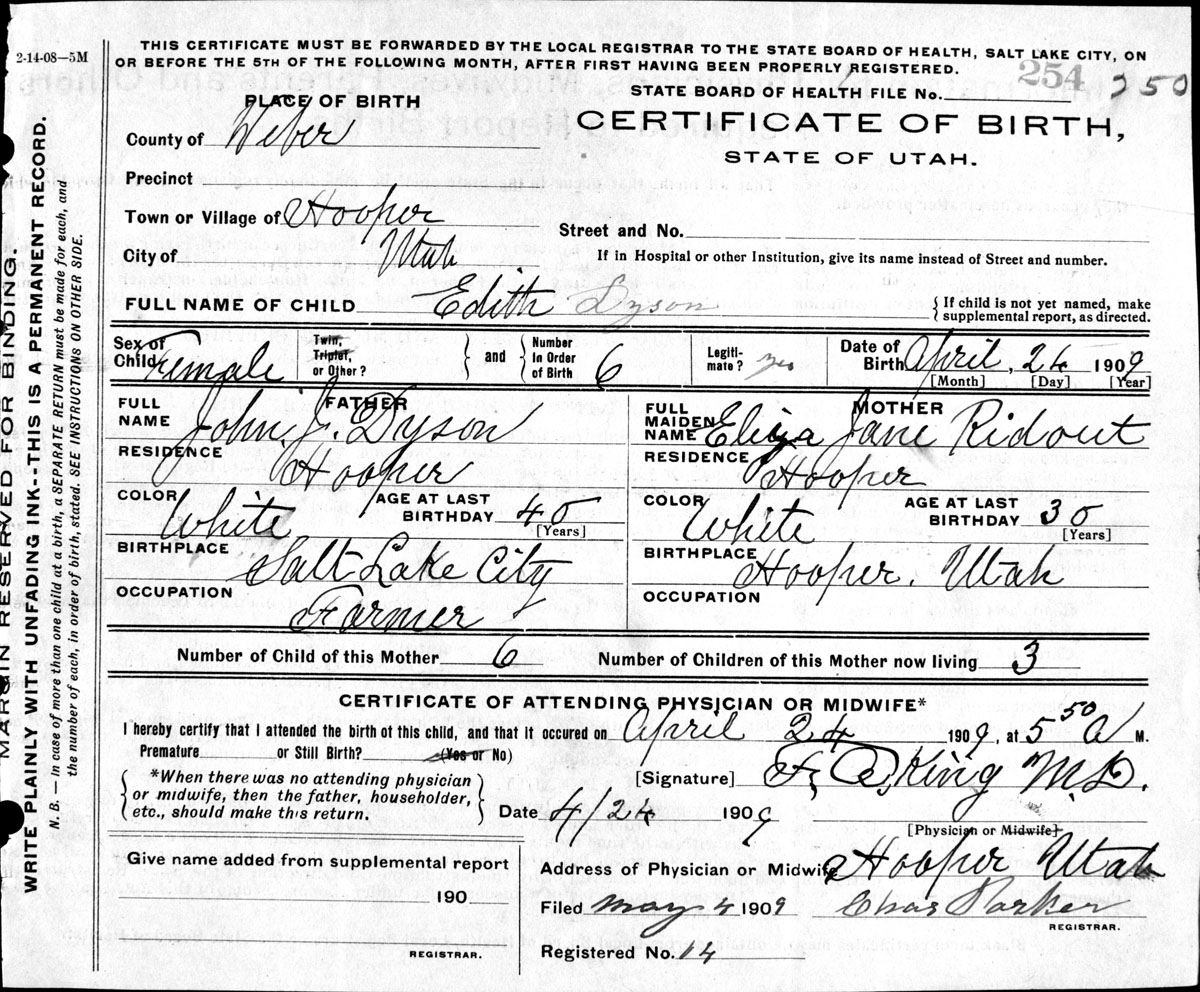 2-14-08—5M
THIS CERTIFICATE MUST BE FORWARDED BY THE LOCAL REGISTRAR TO THE STATE BOARD OF HEALTH, SALT LAKE CITY, ON
OR BEFORE THE 5TH OF THE FOLLOWING MONTH, AFTER FIRST HAVING BEEN PROPERLY REGISTERED.
STATE BOARD OF HEALTH FILE No. 254 250
PLACE OF BIRTH
CERTIFICATE OF BIRTH,
STATE OF UTAH.
County of Weber
Precinct
Town or Village of Hooper
Street and No.
City of Utah
If in Hospital or other Institution, give its name instead of Street and number.
FULL NAME OF CHILD Edith Dyson
{ If child is not yet named, make
supplemental report, as directed.
Sex of Child Female
Twin, Triplet, or Other?
and
Number in Order of Birth 6
Legitimate? yes
Date of Birth April 24 1909
[Month] [Day] [Year]
FATHER
FULL NAME John J. Dyson
RESIDENCE Hooper
COLOR White
AGE AT LAST BIRTHDAY 40 [Years]
BIRTHPLACE Salt Lake City
OCCUPATION Farmer
MOTHER
FULL MAIDEN NAME Eliza Jane Ridout
RESIDENCE Hooper
COLOR White
AGE AT LAST BIRTHDAY 30 [Years]
BIRTHPLACE Hooper, Utah
OCCUPATION
Number of Child of this Mother 6
Number of Children of this Mother now living 3
CERTIFICATE OF ATTENDING PHYSICIAN OR MIDWIFE*
I hereby certify that I attended the birth of this child, and that it occured on April 24 1909, at 5 50 A M.
Premature or Still Birth? (Yes or No)
*When there was no attending physician
or midwife, then the father, householder,
etc., should make this return.
[Signature] King M.D.
Date 4/24 1909
[Physician or Midwife]
Give name added from supplemental report
190
REGISTRAR.
Address of Physician or Midwife Hooper Utah
Filed may 4 1909
Chas Parker
REGISTRAR.
Registered No. 14
MARGIN RESERVED FOR BINDING.
WRITE PLAINLY WITH UNFADING INK--THIS IS A PERMANENT RECORD.
N. B. — In case of more than one child at a birth, a SEPARATE RETURN must be made for each, and
the number of each, in order of birth, stated. SEE INSTRUCTIONS ON OTHER SIDE.